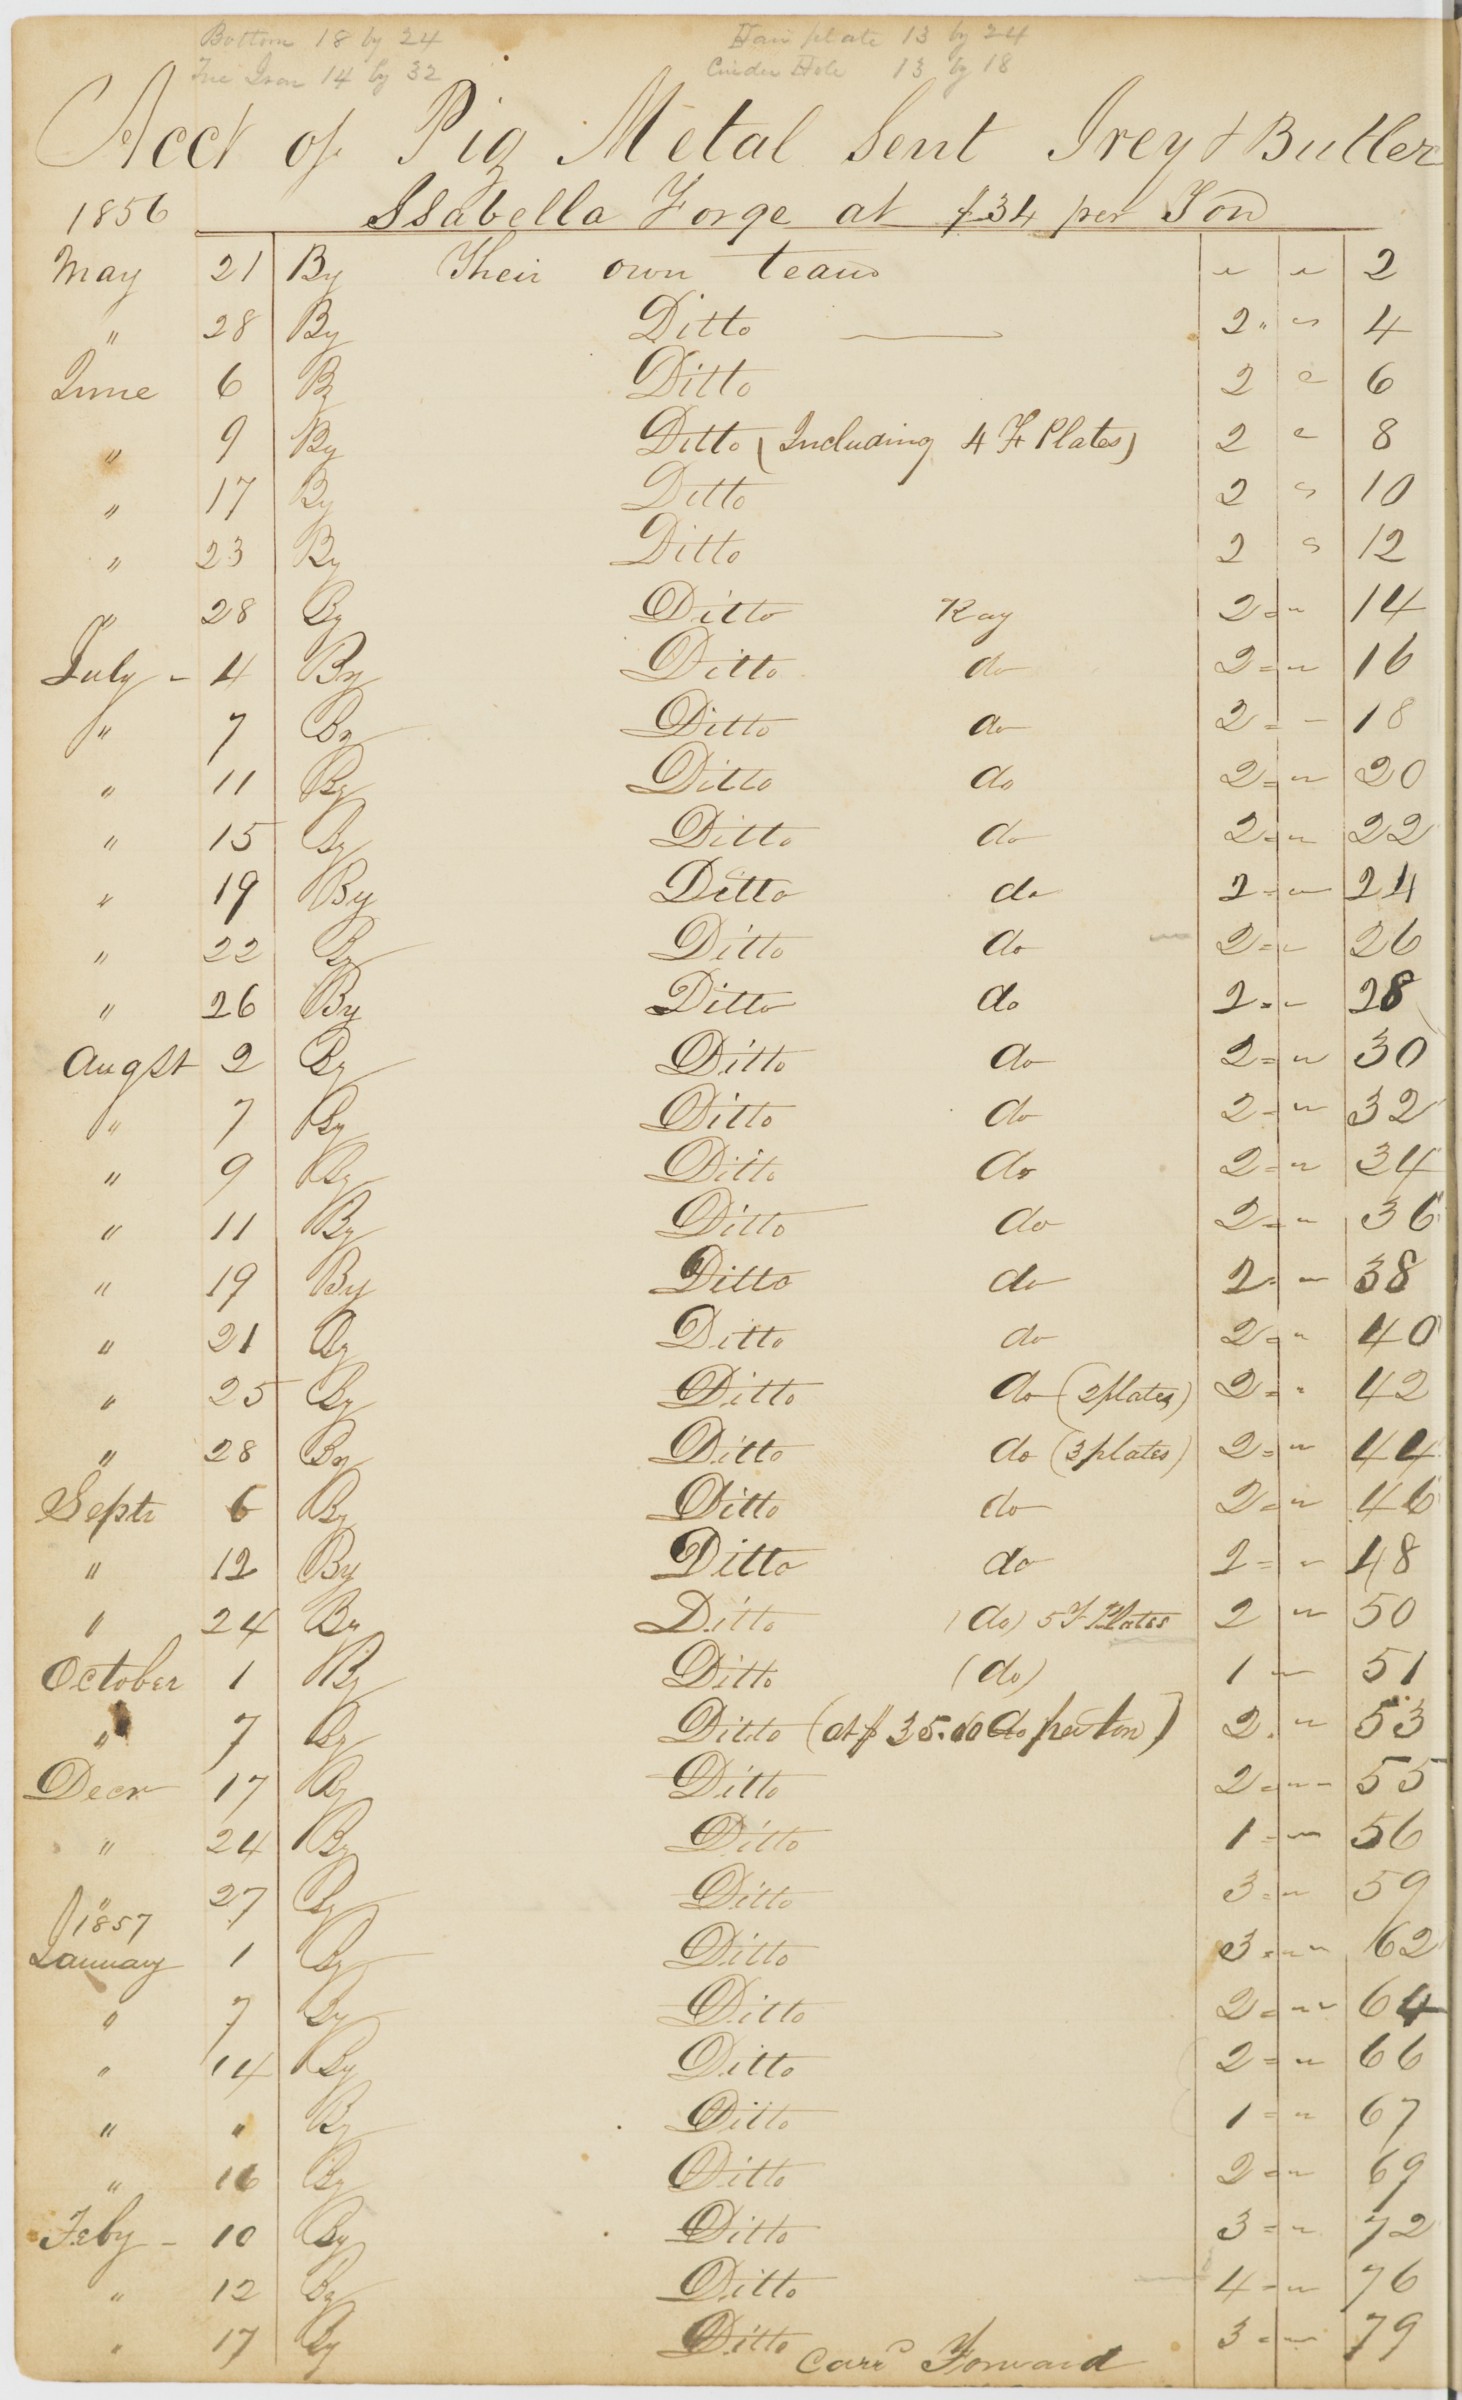 Bottom 18 by 24 Hair plate 13 by 24
Tue Iron 14 by 32 Cinder Hole 13 by 18
Acct of Pig Metal Sent Irey & Butler
1856 Isabella Forge at $34 per Ton
May 21 By Their own teams " " 2
" 28 By Ditto 2 " " 4
June 6 By Ditto 2 " 6
" 9 By Ditto (Including 4 F Plates) 2 " 8
" 17 By Ditto 2 " 10
" 23 By Ditto 2 " 12
" 28 By Ditto Ray 2 = " 14
July - 4 By Ditto do 2 = " 16
" 7 By Ditto do 2 = " 18
" 11 By Ditto do 2 = " 20
" 15 By Ditto do 2 = " 22
" 19 By Ditto do 2 = " 24
" 22 By Ditto do 2 = " 26
" 26 By Ditto do 2 = " 28
Augst 2 By Ditto do 2 = " 30
" 7 By Ditto do 2 = " 32
" 9 By Ditto do 2 = " 34
" 11 By Ditto do 2 = " 36
" 19 By Ditto do 2 = " 38
" 21 By Ditto do 2 = " 40
" 25 By Ditto do (2 plates) 2 = " 42
" 28 By Ditto do (3 plates) 2 = " 44
Septr 6 By Ditto do 2 = " 46
" 12 By Ditto do 2 = " 48
" 24 By Ditto (do) 5 F Plates 2 " 50
October 1 By Ditto (do) 1 " 51
" 7 By Ditto (at $35.00 do per ton) 2 . " 53
Decr 17 By Ditto 2 = " - 55
" 24 By Ditto 1 = " 56
" 27 By Ditto 3 = " 59
1857
January 1 By Ditto 3 = " " 62
" 7 By Ditto 2 = " " 64
" 14 By Ditto 2 = " 66
" " By Ditto 1 = " 67
" 16 By Ditto 2 = " 69
Feby - 10 By Ditto 3 = " 72
" 12 By Ditto 4 = " 76
" 17 By Ditto 3 = " 79
Carrd Forward